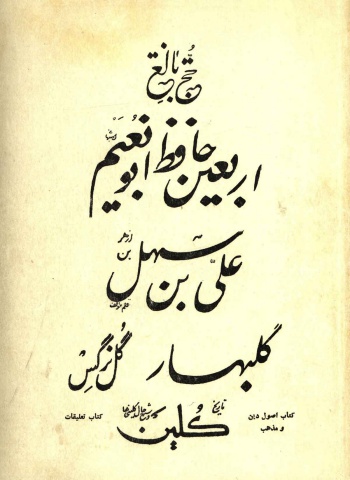 حُجج بالغه
اربعین حافظ ابونعیم
علی بن سهل بن ازهر
گلبهار گُل نرگس
کتاب اصول دین و مذهب تاریخ کُلین کتاب تعلیقات